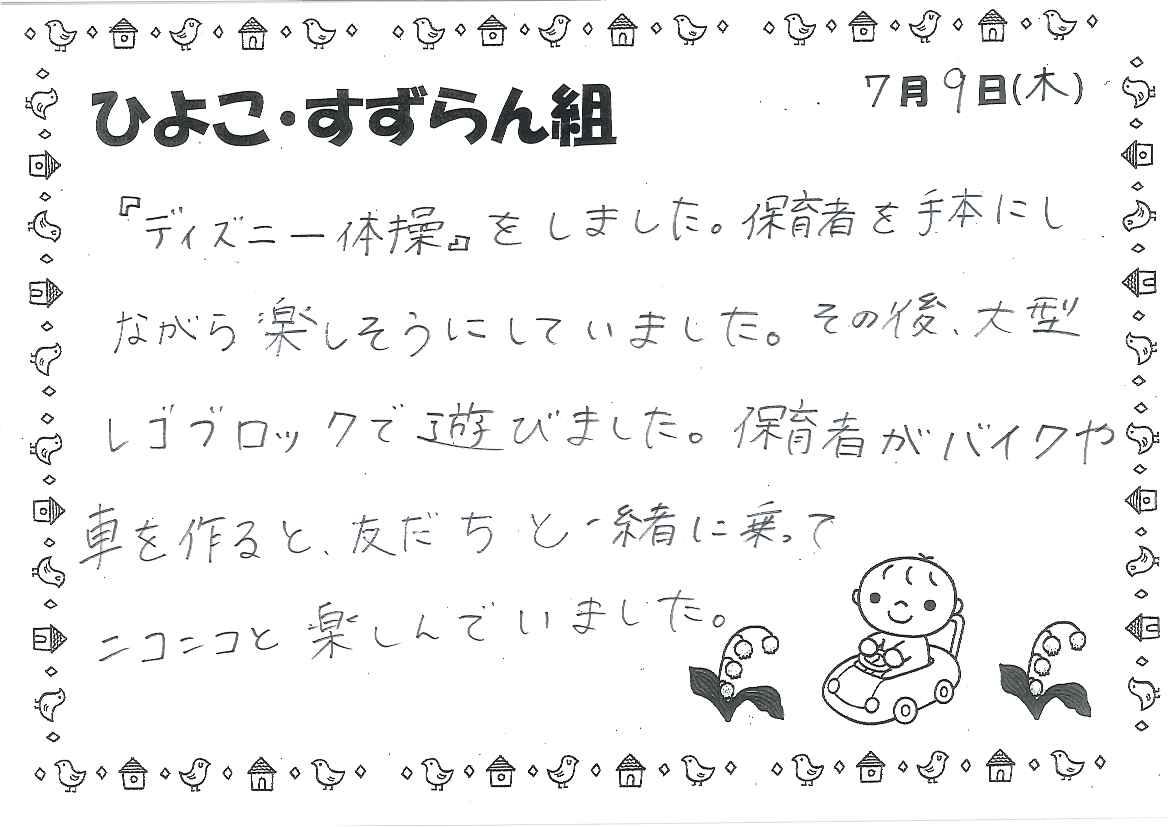 ひよこ・すずらん組
7月9日(木)
『ディズニー体操』をしました。保育者を手本にし
ながら楽しそうにしていました。その後、大型
レゴブロックで遊びました。保育者がバイクや
車を作ると、友だちと一緒に乗って
ニコニコと楽しんでいました。